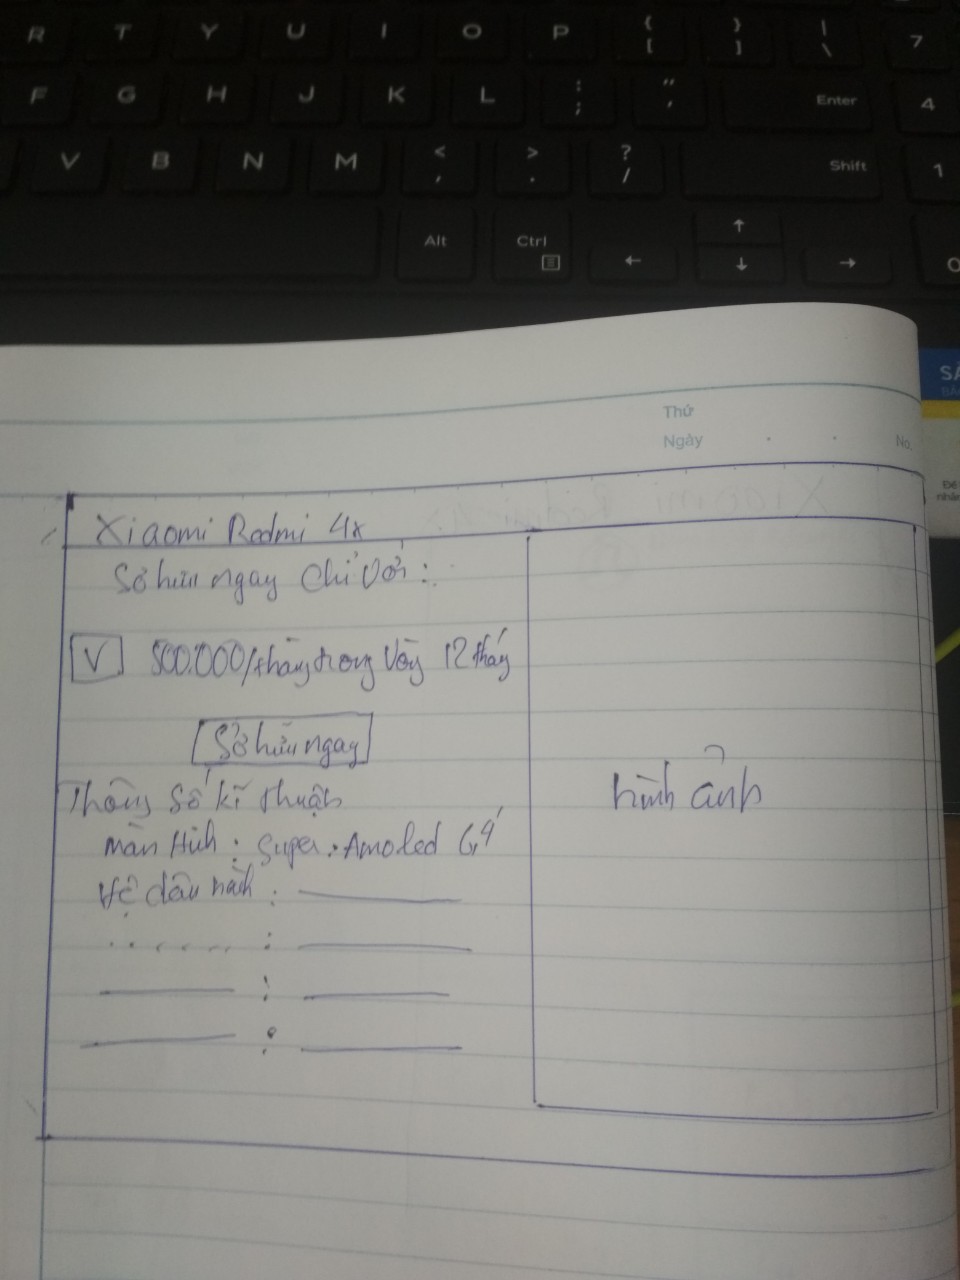 R T Y U I O P { [ } ] | \ 7
F G H J K L : ; " ' Enter 4
V B N M < , > . ? / Shift 1
Alt Ctrl ← ↑ ↓ → 0
SẢ
Thứ
Ngày . . No.
Xiaomi Redmi 4x
Sở hữu ngay chỉ với :
V 500.000/tháng trong vòng 12 tháng
Sở hữu ngay
Thông số kĩ thuật
hình ảnh
Màn Hình : Super Amoled 6,4"
Hệ điều hành :